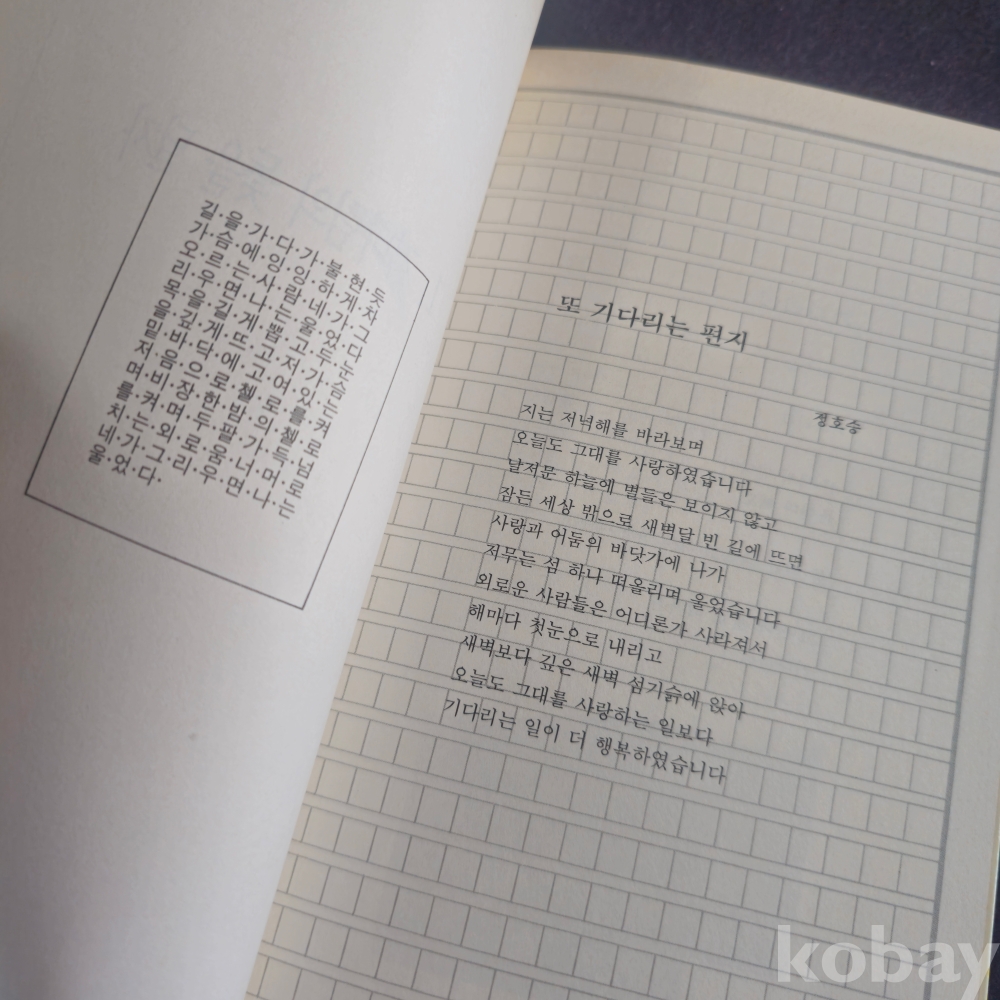 길·을·가·다·가·불·현·듯
가·슴·에·잉·잉·하·게·차
오·르·는·사·람·네·가·그
리·우·면·나·는·울·었·다
목·을·길·게·뽑·고·두·눈
을·깊·게·뜨·고·저·가·슴
밑·바·닥·에·고·여·있·는
저·음·으·로·첼·로·를·켜
며·비·장·한·밤·의·첼·로
를·켜·며·두·팔·가·득·넘
치·는·외·로·움·너·머·로
네·가·그·리·우·면·나·는
울·었·다.
또 기다리는 편지
정호승
지는 저녁해를 바라보며
오늘도 그대를 사랑하였습니다
날저문 하늘에 별들은 보이지 않고
잠든 세상 밖으로 새벽달 빈 길에 뜨면
사랑과 어둠의 바닷가에 나가
저무는 섬 하나 떠올리며 울었습니다
외로운 사람들은 어디론가 사라져서
해마다 첫눈으로 내리고
새벽보다 깊은 새벽 섬기슭에 앉아
오늘도 그대를 사랑하는 일보다
기다리는 일이 더 행복하였습니다
kobay